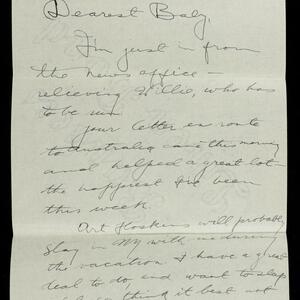 Dearest Baby,
I'm just in from
the news office -
relieving Willie, who has
to be
your letter en route
to Australia came this morning
and helped a great lot -
the happiest I've been
this week.
Art Hoskins will probably
stay in NY with me during
the vacation. I have a great
deal to do, and want to
think it best not